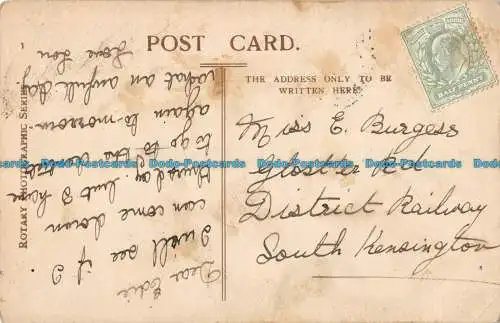 POST CARD.
THE ADDRESS ONLY TO BE
WRITTEN HERE.
ROTARY PHOTOGRAPHIC SERIES
1
HALF PENNY
Miss E. Burgess
Gloster Rd
District Railway
South Kensington
Dear Edie
I will see if I
can come down
thursday. but I have
to go to the
again to-morrow
what an awfull day
Love Lou
Dods-Postcards
Dods-Postcards
Dods-Postcards
Dods-Postcards